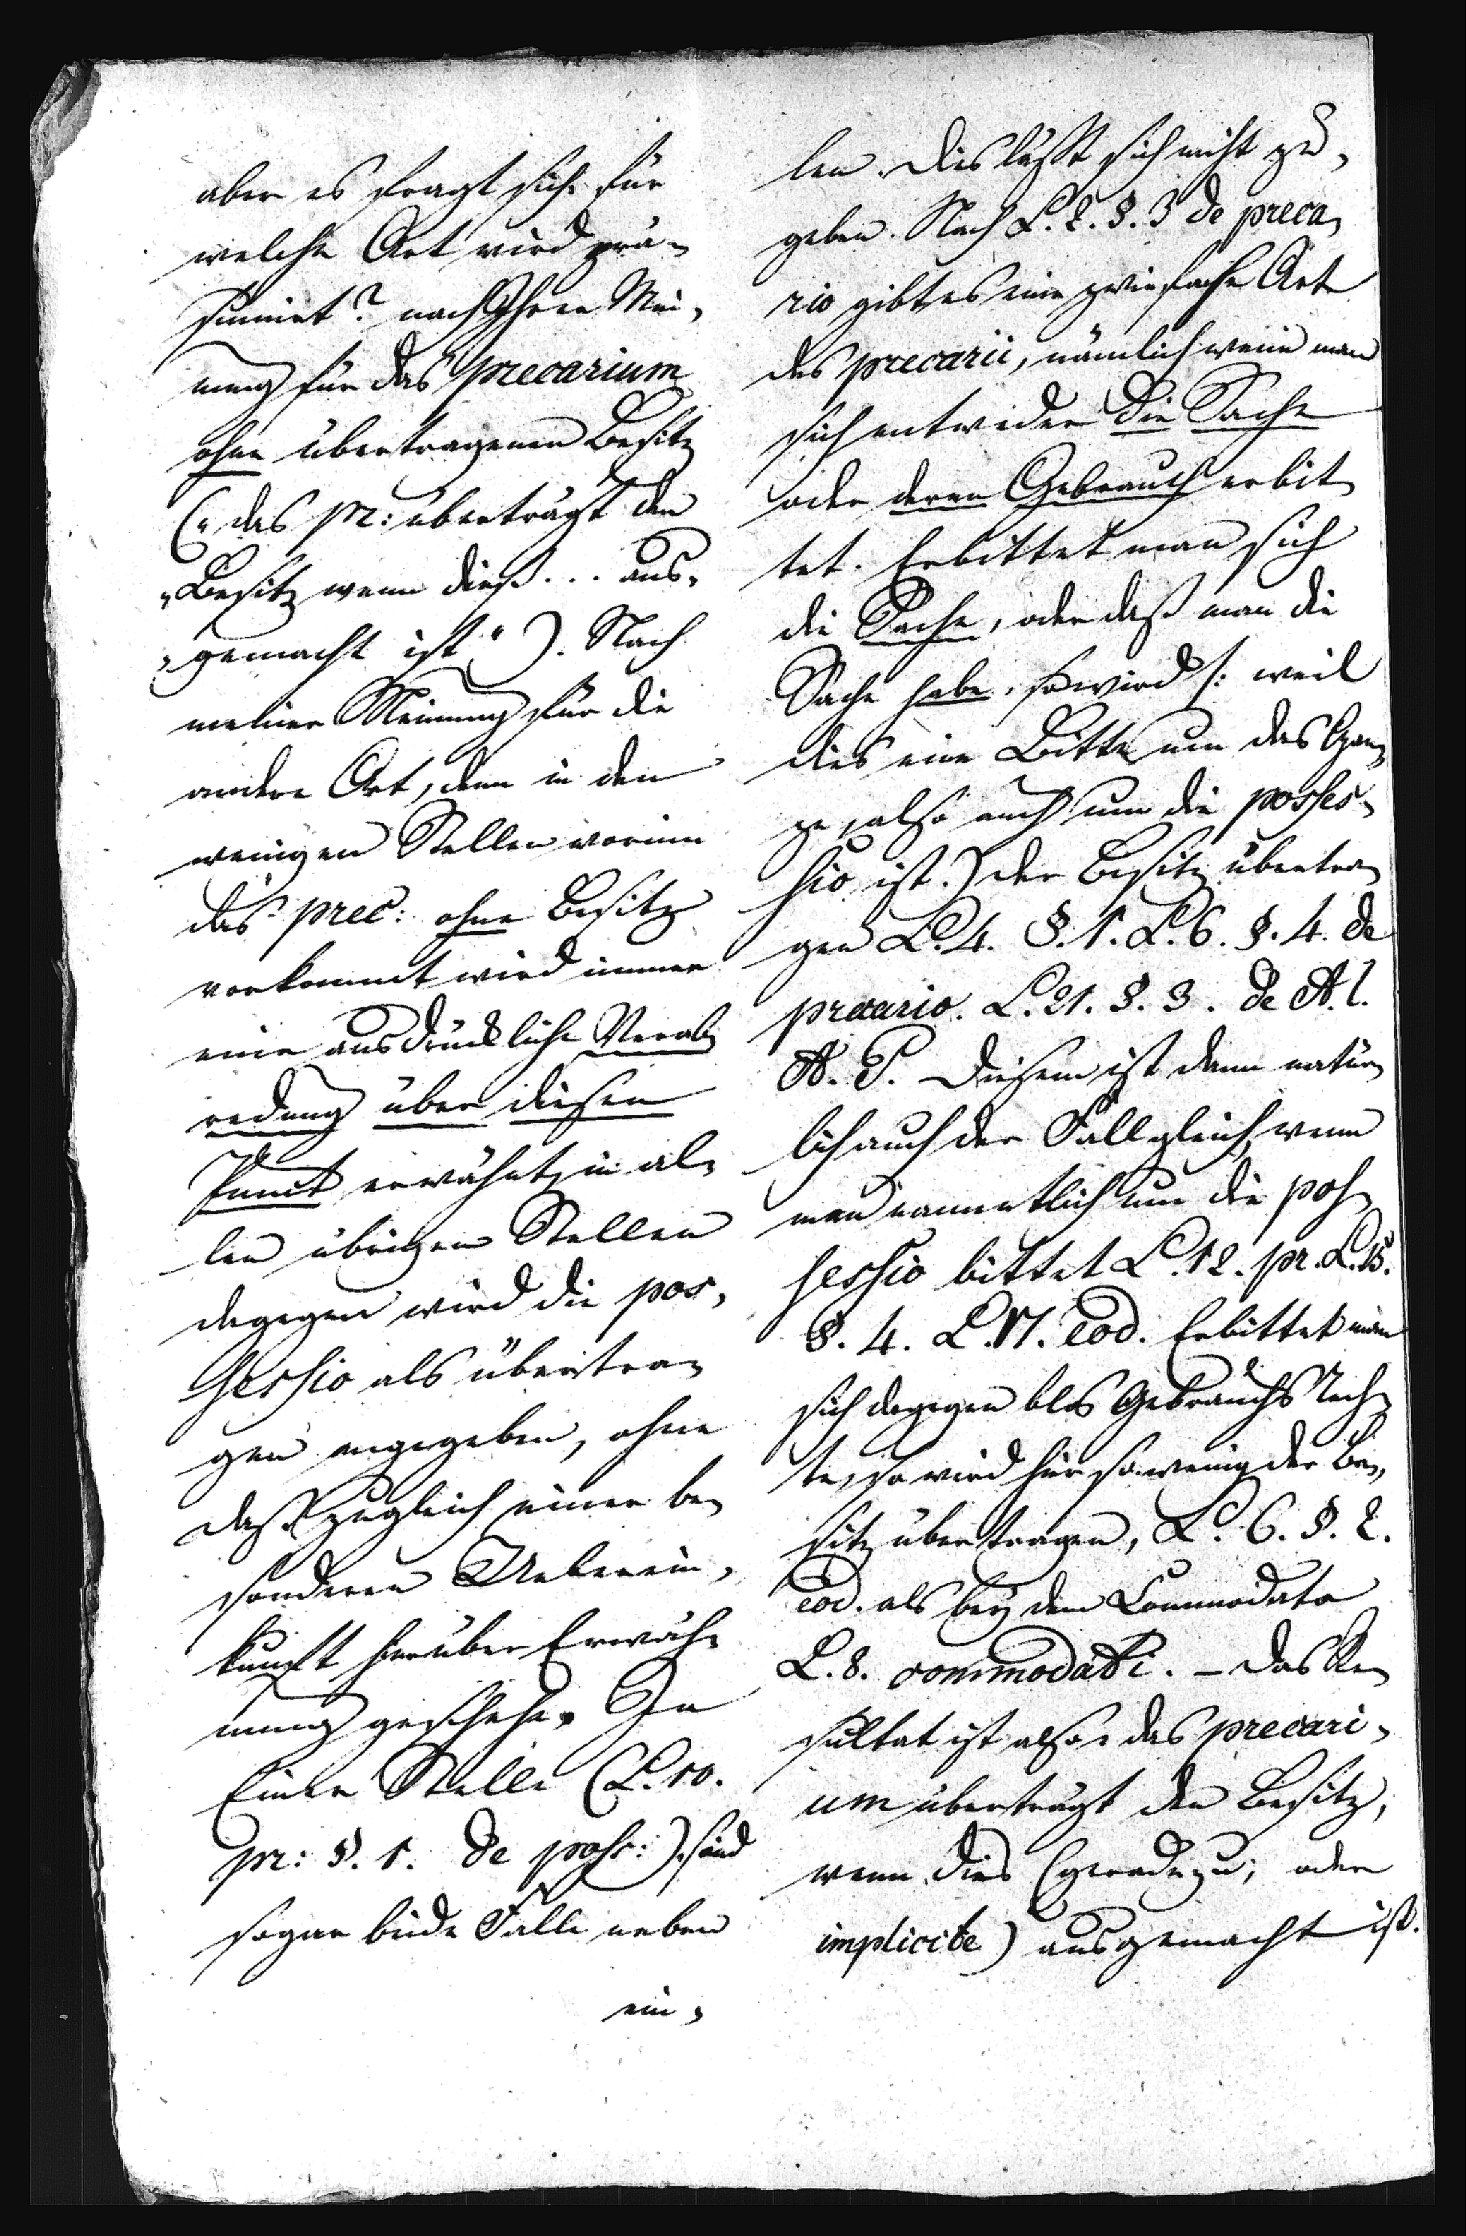 aber es fragt sich: für
welche Art wird prä-
sumirt? nach Ihrer Mei-
nung für das precarium
ohne übertragenen Besitz
(„das pr: überträgt den
„Besitz wenn dieß... aus-
„gemacht ist“). Nach
meiner Meinung für die
andere Art, denn in den
wenigen Stellen worinn
das prec: ohne Besitz
vorkommt wird immer
eine ausdrückliche Verab-
redung über diesen
Punct erwähnt, in al-
len übrigen Stellen
dagegen wird die pos-
sessio als übertra-
gen angegeben, ohne
daß zugleich einer be-
sonderen Ueberein-
kunft hierüber Erwäh-
nung geschehe. In
Einer Stelle (L. 10.
pr: §. 1. de poss:) sind
sogar beide Fälle neben
ein-
len. Dies läßt sich nicht zu-
geben. Nach L. 2. §. 3 de preca-
rio gibt es eine zwiefache Art
des precarii, nämlich wenn man
sich entweder die Sache
oder deren Gebrauch erbit-
tet. Erbittet man sich
die Sache, oder daß man die
Sache habe, so wird (: weil
dies eine Bitte um das Gan-
ze, also auch um die posses-
sio ist.) der Besitz übertra-
gen L. 4. §. 1. L. 6. §. 4. de
precario. L. 21. §. 3. de A. l.
A. P. Diesem ist denn natür-
lich auch der Fall gleich, wenn
man namentlich um die pos-
sessio bittet L. 12. pr. L. 15.
§. 4. L. 17. eod. Erbittet man
sich dagegen blos Gebrauchs Rech-
te, so wird hier so wenig der Be-
sitz übertragen, L. 6. §. 2.
eod. als bey dem Commodato
L. 8. commodati. – Das Re-
sultat ist also: das precari-
um überträgt den Besitz,
wenn dies (geradezu, oder
implicite) ausgemacht ist.